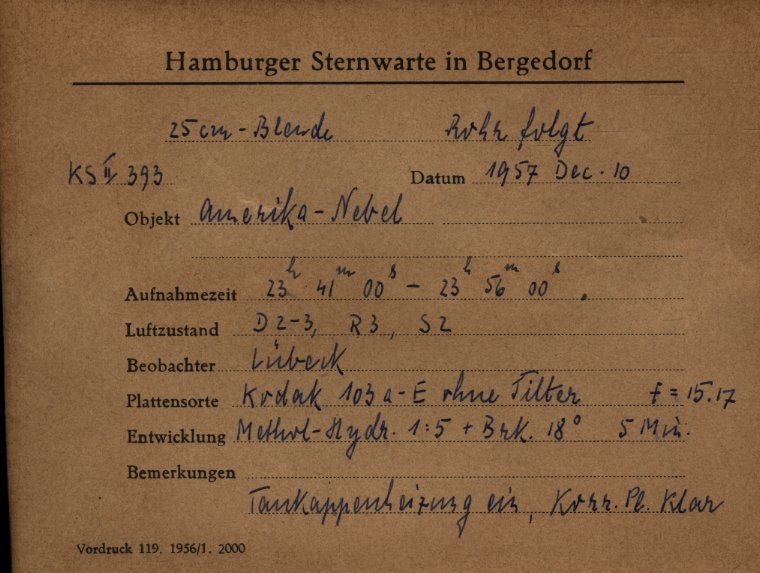 Hamburger Sternwarte in Bergedorf
25cm-Blende Rohr folgt
KS II 393 Datum 1957 Dec. 10
Objekt Amerika-Nebel
Aufnahmezeit 23h 41m 00s - 23h 56m 00s.
Luftzustand D2-3, R3, S2
Beobachter Lübeck
Plattensorte Kodak 103a-E ohne Filter f = 15.17
Entwicklung Methol-Hydr. 1:5 + Brk. 18° 5 Min.
Bemerkungen
Taukappenheizung ein, Korr. Pl. klar
Vordruck 119. 1956/1. 2000